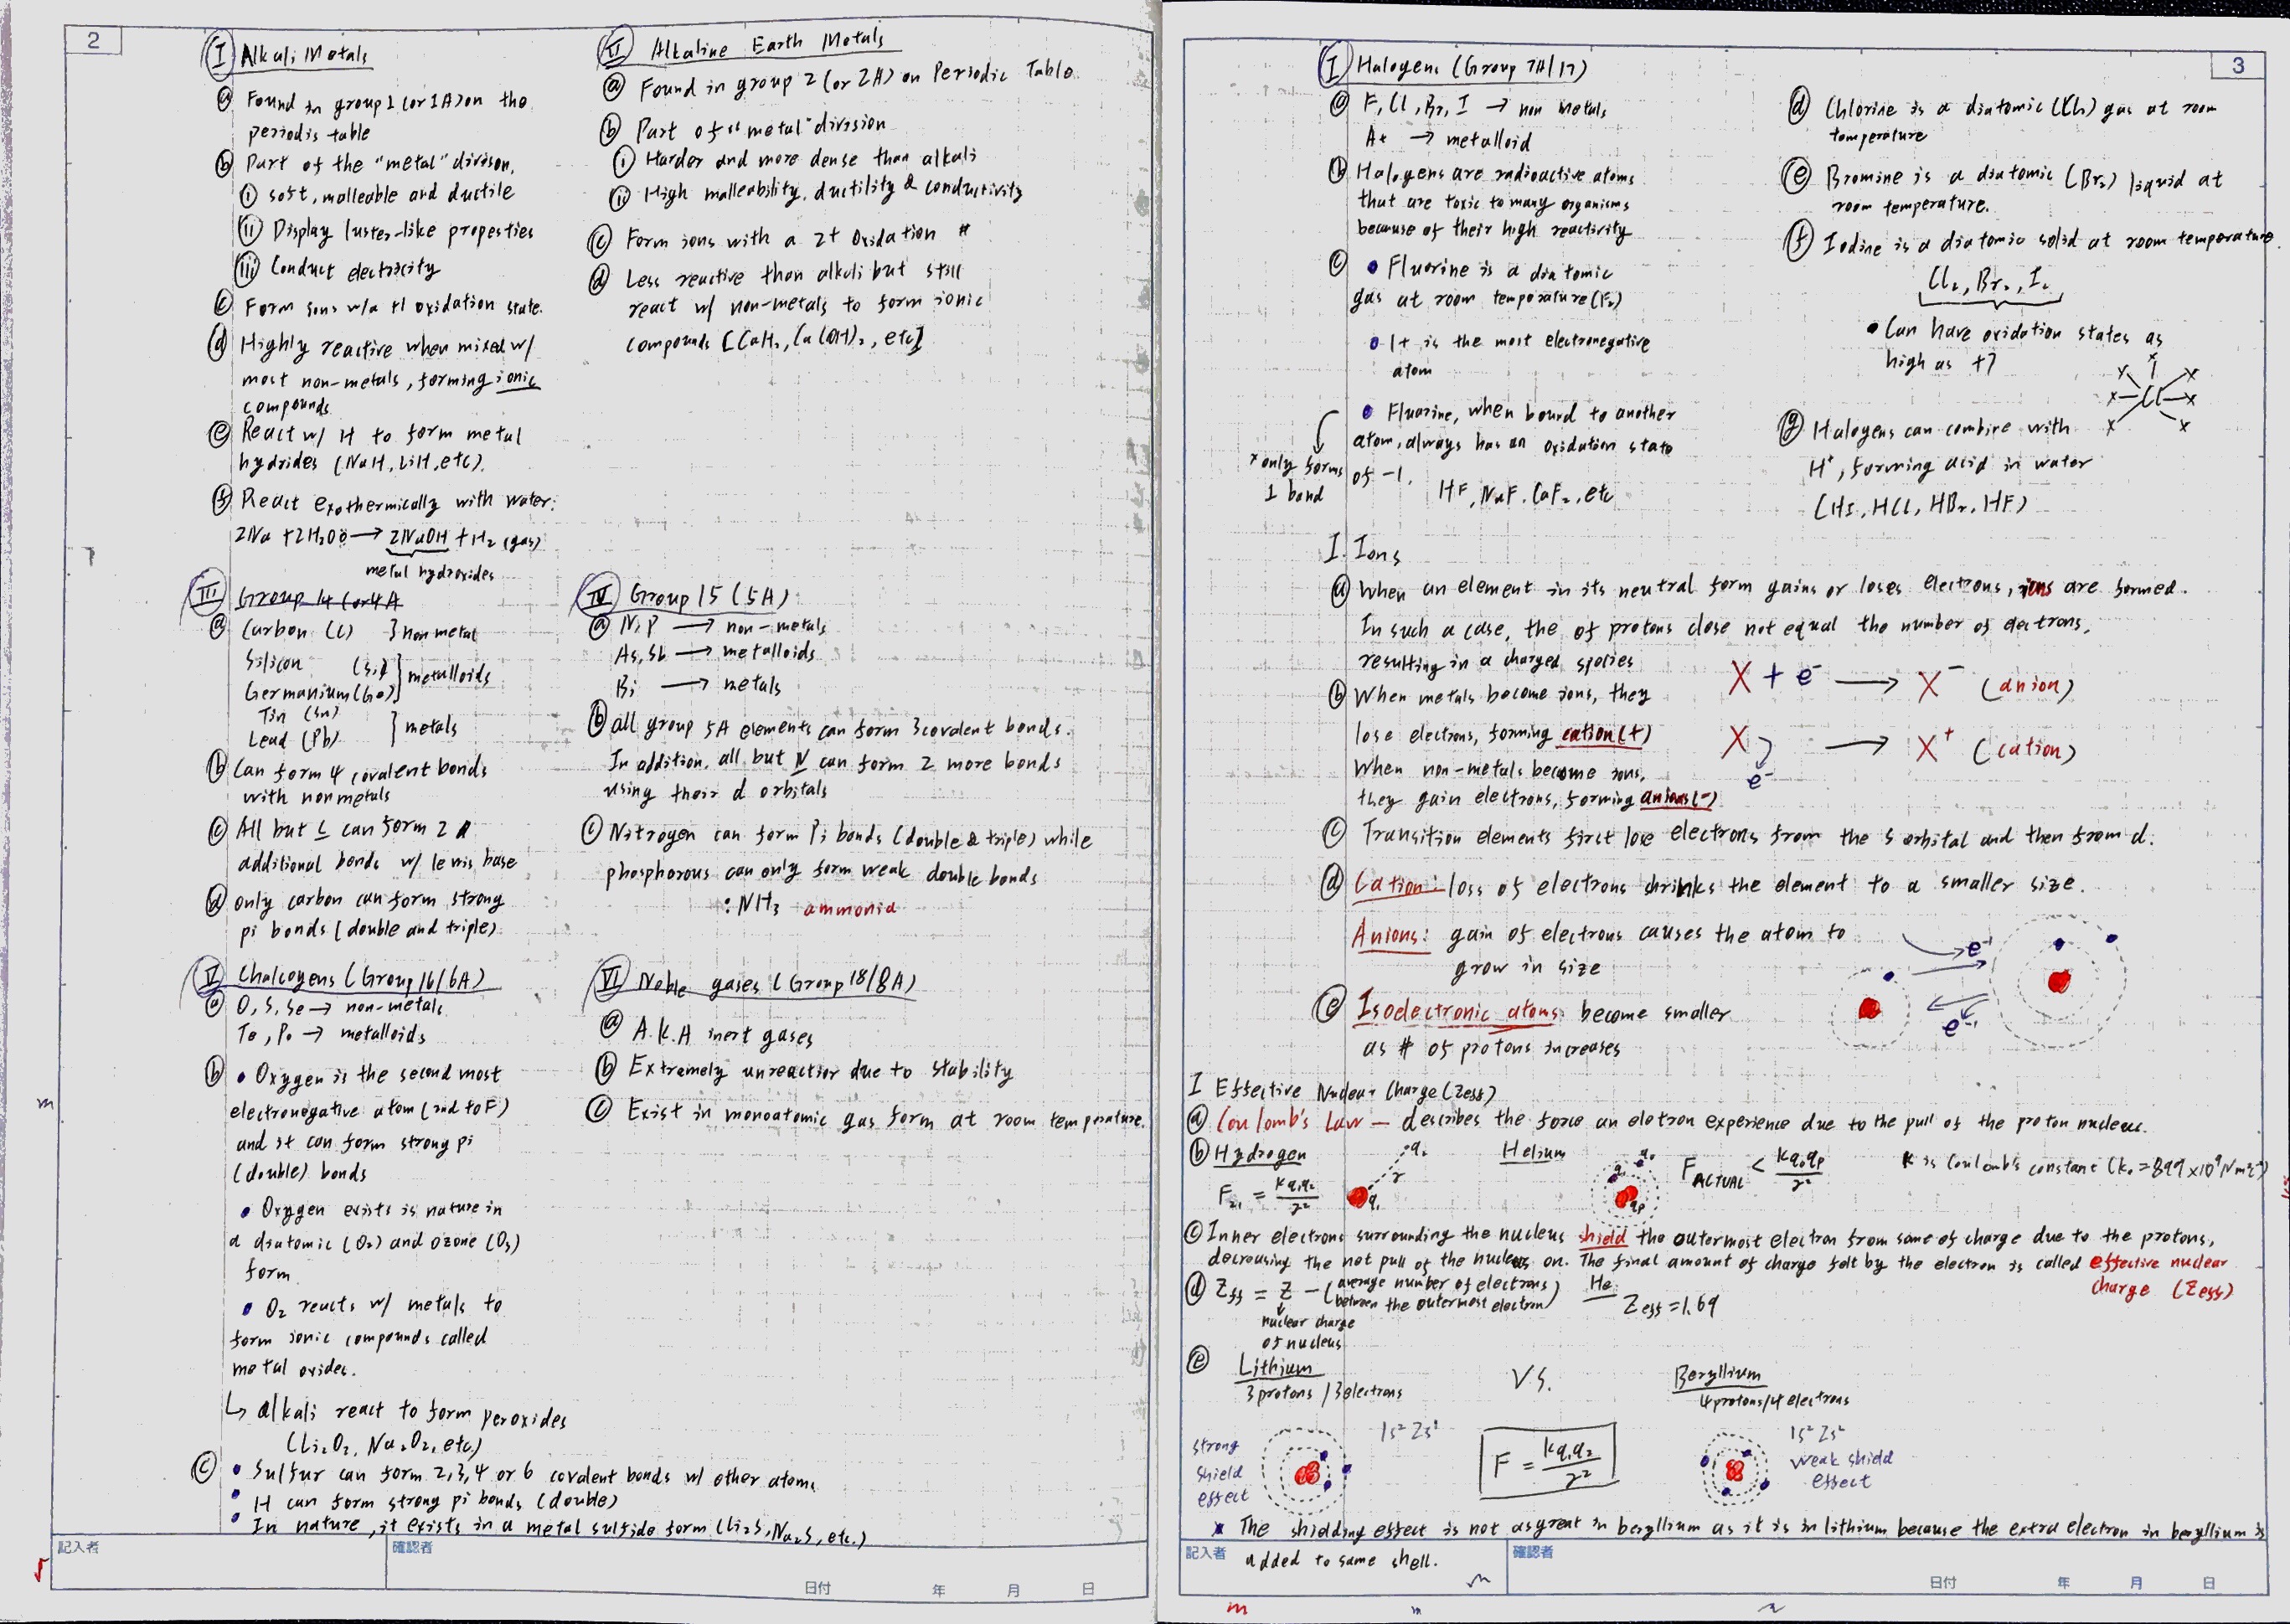 2
I Alkali Metals
a Found in group 1 (or 1A) on the
periodis table
b Part of the "metal" divison.
i soft, malleable and ductile
ii Display luster-like properties
iii Conduct electricity
c Form ions w/a +1 oxidation state.
d Highly reactive when mixed w/
most non-metals, forming ionic
compounds
e React w/ H to form metal
hydrides (NaH, LiH, etc).
f React exothermically with water:
2Na + 2H2O → 2NaOH + H2 (gas)
metal hydroxides
II Alkaline Earth Metals
a Found in group 2 (or 2A) on Periodic Table.
b Part of "metal" division
i Harder and more dense than alkali
ii High malleability, ductility & conductivity
c Form ions with a 2+ Oxidation #
d Less reactive than alkali but still
react w/ non-metals to form ionic
compounds [CaH2, Ca(OH)2, etc]
III Group 14 (or 4A
a Carbon (C) } non metal
Silicon (Si)
Germanium (Ge) } metalloids
Tin (Sn)
Lead (Pb) } metals
b Can form 4 covalent bonds
with nonmetals
c All but C can form 2
additional bonds w/ lewis base
d only carbon can form strong
pi bonds (double and triple)
IV Group 15 (5A)
a N, P → non-metals
As, Sb → metalloids
Bi → metals
b all group 5A elements can form 3 covalent bonds.
In addition, all but N can form 2 more bonds
using their d orbitals
c Nitrogen can form Pi bonds (double & triple) while
phosphorous can only form weak double bonds
:NH3 ammonia
V Chalcogens (Group 16/6A)
a O, S, Se → non-metals
Te, Po → metalloids
b • Oxygen is the second most
electronegative atom (2nd to F)
and it can form strong pi
(double) bonds
• Oxygen exists is nature in
a diatomic (O2) and ozone (O3)
form.
• O2 reacts w/ metals to
form ionic compounds called
metal oxides.
↳ alkali react to form peroxides
(Li2O2, Na2O2, etc)
c • Sulfur can form 2,3,4 or 6 covalent bonds w/ other atoms
• H can form strong pi bonds (double)
• In nature, it exists in a metal sulfide form (Li2S, Na2S, etc.)
VI Noble gases (Group 18/8A)
a A.K.A inert gases
b Extremely unreactior due to stability
c Exist in monoatomic gas form at room temperature.
記入者 確認者
日付 年 月 日
3
I Halogens (Group 7A/17)
a F, Cl, Br, I → non metals
At → metalloid
b Halogens are radioactive atoms
that are toxic to many organisms
because of their high reactivity
c • Fluorine is a diatomic
gas at room temperature (F2)
• It is the most electronegative
atom
• Fluorine, when bound to another
atom, always has an oxidation state
of -1.
* only forms
1 bond
HF, NaF, CaF2, etc
d Chlorine is a diatomic (Cl2) gas at room
temperature
e Bromine is a diatomic (Br2) liquid at
room temperature.
f Iodine is a diatomic solid at room temperature.
Cl2, Br2, I2
• Can have oxidation states as
high as +7
X X X
X Cl X
X X
g Halogens can combine with
H+, forming acid in water
(HI, HCl, HBr, HF)
I. Ions
a When an element in its neutral form gains or loses electrons, ions are formed.
In such a case, the of protons close not equal the number of electrons,
resulting in a charged species
b When metals become ions, they
lose electrons, forming cation(+)
When non-metals become ions,
they gain electrons, forming anions(-)
X + e- → X- (anion)
X → X+ (cation)
e-
c Transition elements first lose electrons from the s orbital and then from d.
d Cation: loss of electrons shrinks the element to a smaller size.
Anions: gain of electrons causes the atom to
grow in size
e-
e-
e Isoelectronic atoms become smaller
as # of protons increases
I Effective Nuclear Charge (Zeff)
a Coulomb's Law — describes the force an eletron experience due to the pull of the proton nucleus.
b Hydrogen
F21 = kq1q2/r2
q2
r
q1
Helium
FACTUAL < kqeqp/r2
K is Coulomb's constant (ke = 8.99 x 10^9 Nm2C-2)
c Inner electrons surrounding the nucleus shield the outermost electron from some of charge due to the protons,
decreasing the net pull of the nucleus on. The final amount of charge felt by the electron is called effective nuclear
charge (Zeff)
d Zeff = Z - (average number of electrons
between the outermost electron)
nuclear charge
of nucleus
He
Zeff = 1.69
e Lithium
3 protons / 3 electrons
VS.
Beryllium
4 protons/4 electrons
strong
shield
effect
1s2 2s1
F = kq1q2/r2
1s2 2s2
weak shield
effect
* The shielding effect is not as great in beryllium as it is in lithium because the extra electron in beryllium is
added to same shell.
記入者 確認者
日付 年 月 日